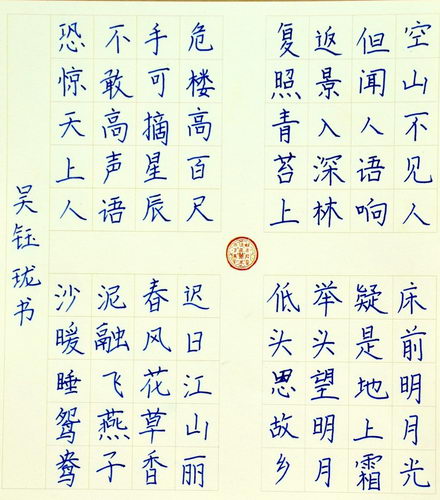 空山不见人
但闻人语响
返景入深林
复照青苔上
危楼高百尺
手可摘星辰
不敢高声语
恐惊天上人
床前明月光
疑是地上霜
举头望明月
低头思故乡
迟日江山丽
春风花草香
泥融飞燕子
沙暖睡鸳鸯
吴钰珑书